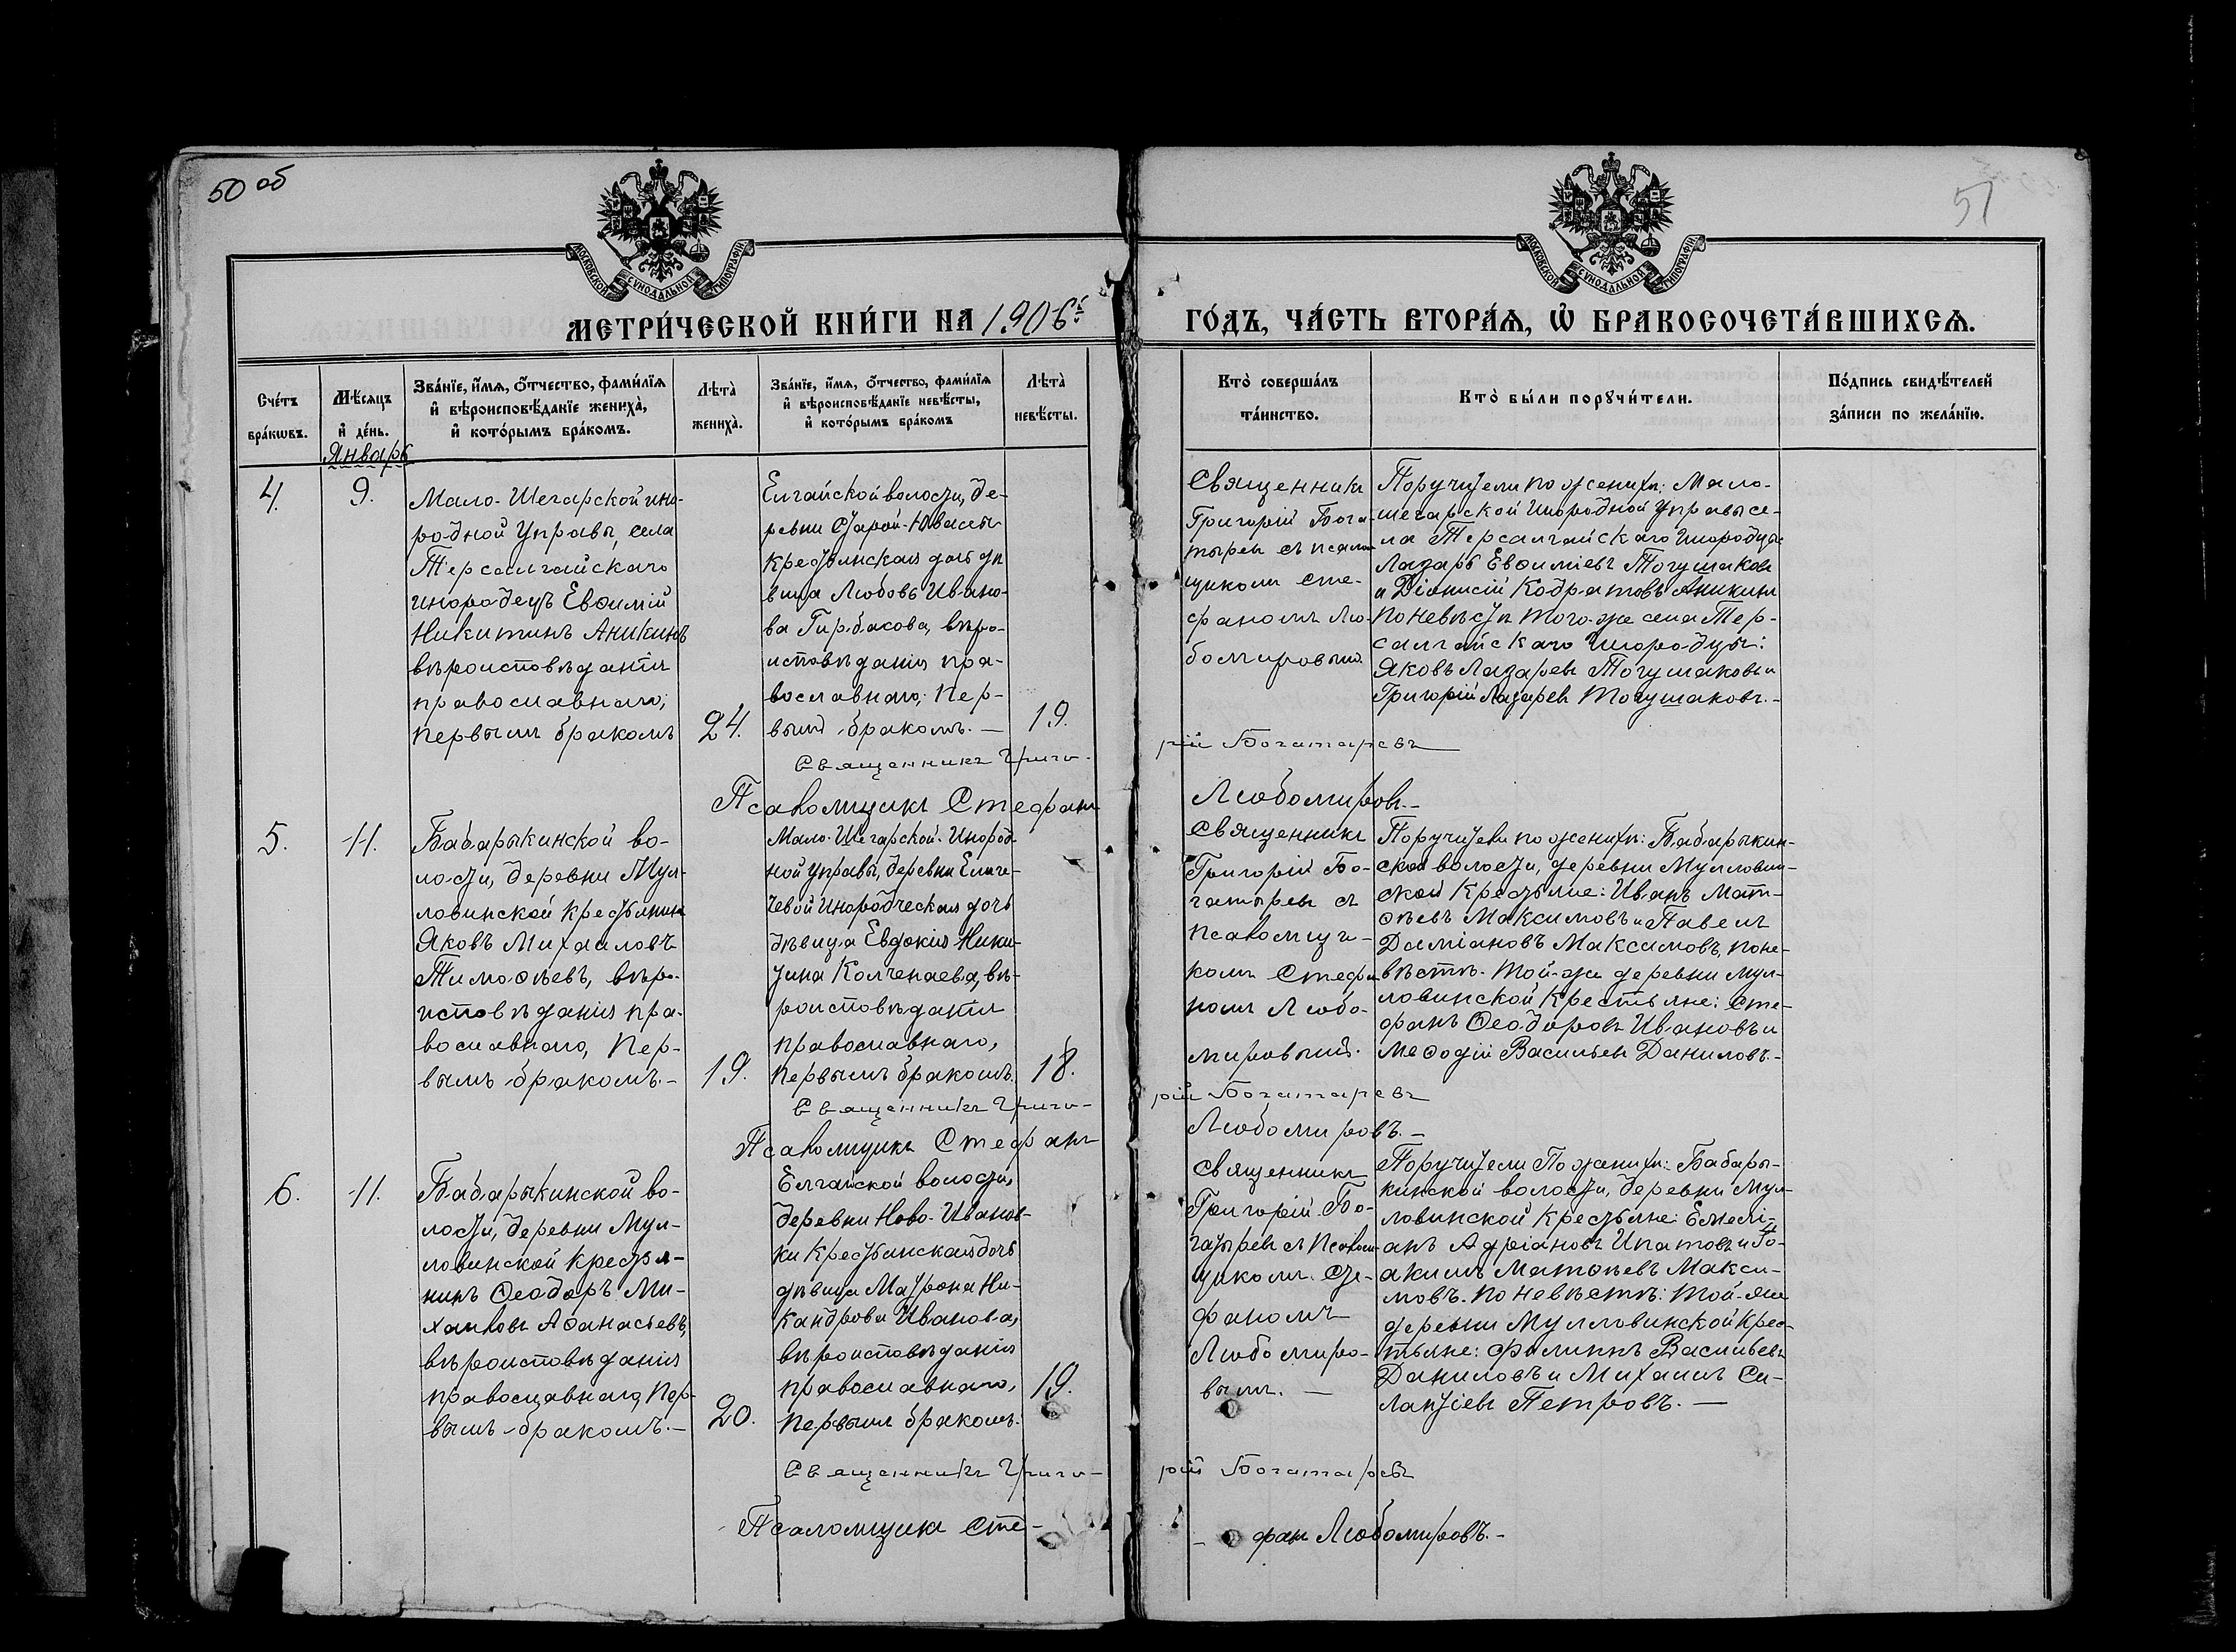 50 об
51
МОСКОВСКОЙ СѴНОДАЛЬНОЙ ТИПОГРАФІИ.
МОСКОВСКОЙ СѴНОДАЛЬНОЙ ТИПОГРАФІИ.
МЕТРИ́ЧЕСКОЙ КНИ́ГИ НА 1906й
ГО́ДЪ, ЧА́СТЬ ВТОРА́Ѧ, Ѡ҆ БРАКОСОЧЕТА́ВШИХСѦ.
Сче́тъ
бра́кѡвъ.
Мѣ́сяцъ
и҆ де́нь.
Январь
Зва́нїе, и҆́мѧ, ѻ҆́тчество, фами́лїѧ
и҆ вѣроисповѣ́данїе жениха̀,
и҆ кото́рымъ бра́комъ.
Лѣта̀
жениха̀.
Зва́нїе, и҆́мѧ, ѻ҆́тчество, фами́лїѧ
и҆ вѣроисповѣ́данїе невѣ́сты,
и҆ кото́рымъ бра́комъ
Лѣта̀
невѣ́сты.
Кто̀ соверша́лъ
та́инство.
Кто̀ бы́ли порꙋчи́тели.
По́дпись свидѣ́телей
за́писи по жела́нїю.
4.
9.
Мало-Шегарской ино-
родной управы, села
Терсалгайскаго
инородецъ Евѳимій
Никитинъ Аникинъ
вѣроисповѣданія
православнаго;
первымъ бракомъ
24.
Елгайской волости, де-
ревни Старой-Ювасети
крестьянская дочь дѣ
вица Любовь Ивано-
ва Гирбасова, вѣро-
исповѣданія пра-
вославнаго; пер-
вымъ бракомъ. —
19.
Священникъ
Григорій Бога-
тыревъ съ псалом
щикомъ Сте-
фаномъ Лю-
бомировымъ.
Поручители по женихѣ: Мало-
шегарской Инородной управы се-
ла Терсалгайскаго Инородцы
Лазарь Евѳиміевъ Тогушаковъ
и Діонисій Кодратовъ Аникинъ
по невѣстѣ того-же села Тер-
салгайскаго Инородцы:
Яковъ Лазаревъ Тогушаковъ и
Григорій Лазаревъ Тогушаковъ. -
Священникъ Григо-
рій Богатаревъ
Псаломщикъ Стефанъ
Любомировъ. -
5.
11.
Бабарыкинской во-
лости, деревни Мул-
ловинской крестьянинъ
Яковъ Михаиловъ
Тимоѳеевъ, вѣро-
исповѣданія пра-
вославнаго, пер-
вымъ бракомъ. -
19.
Мало-Шегарской Инород-
ной управы, деревни
чевой Инородческая дочь
дѣвица Евдокія Ники-
тина Колченаева, вѣ-
роисповѣданія
православнаго,
первымъ бракомъ.
18.
Священникъ
Григорій Бо-
гатыревъ съ
псаломщи-
комъ Стефа-
номъ Любо-
мировымъ.
Поручители по женихѣ: Бабарыкин-
ской волости, деревни Мулловин-
ской Крестьяне: Иванъ Мат-
ѳеевъ Максимовъ и Павелъ
Даміановъ Максимовъ, по не-
вѣстѣ. Той-же деревни Мул-
ловинской Крестьяне: Сте-
фанъ Ѳеодоровъ Ивановъ и
Меѳодій Васильевъ Даниловъ. -
Священникъ Григо-
рій Богатаревъ
Псаломщикъ Стефанъ
Любомировъ. -
6.
11.
Бабарыкинской во-
лости, деревни Мул-
ловинской крестья-
нинъ Ѳеодоръ Ми-
хаиловъ Аѳанасьевъ,
вѣроисповѣданія
православнаго, пер-
вымъ бракомъ. -
20.
Елгайской волости,
деревни Ново-Иванов-
ки Крестьянская дочь
дѣвица Матрона Ни-
кандрова Иванова,
вѣроисповѣданія
православнаго,
первымъ бракомъ.
19.
Священникъ
Григорій Бо-
гатыревъ съ Псалом-
щикомъ Сте-
фаномъ
Любомиро-
вымъ. —
Поручители По женихѣ: Бабары-
кинской волости, деревни Мул-
ловинской Крестьяне: Емелі-
анъ Адріановъ Ипатовъ и Іо-
акимъ Матѳеевъ Макси-
мовъ. По невѣстѣ: Той-же
деревни Мулловинской Крес-
тьяне: Филиппъ Васильевъ
Даниловъ и Михаилъ Си-
лантіевъ Петровъ. —
Священникъ Григо-
рій Богатаревъ
Псаломщикъ Сте-
фанъ Любомировъ. -